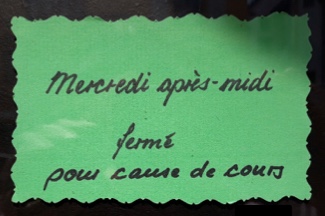 Mercredi après-midi
fermé
pour cause de cours